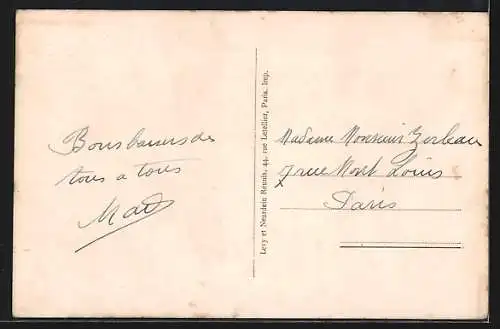 Bons baisers de
tous a tous
Levy et Neurdein Réunis, 44, rue Letellier, Paris. Imp.
Madame Monsieur
7 rue Mont Louis
Paris